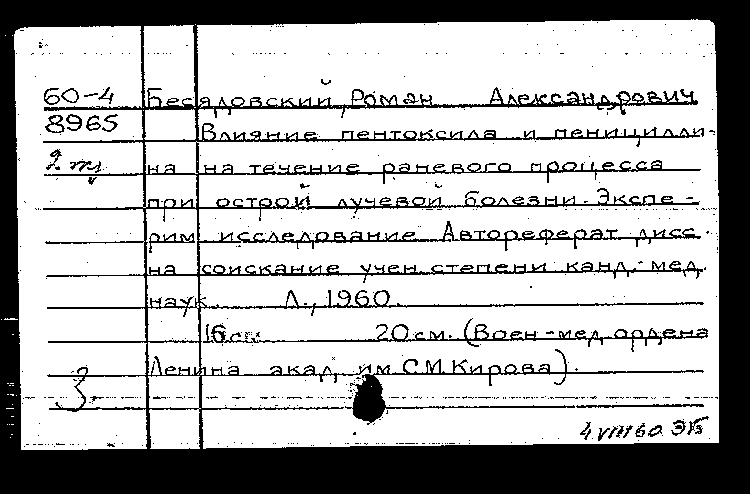 60-4 Бесядовский, Роман Александрович
8965 Влияние пентоксила и пеницилли-
на на течение раневого процесса
при острой лучевой болезни. Экспе-
рим. исследование. Автореферат дисс.
на соискание учен. степени канд. мед.
наук. Л., 1960.
16 стр. 20 см. (Воен-мед. ордена
Ленина акад. им. С.М. Кирова).
3
4 VIII 60 ЭБ